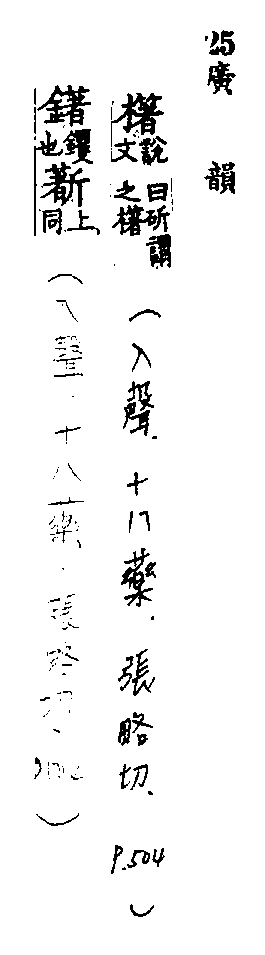 25 廣韻
櫡 說文曰斫謂之櫡 (入聲.十八藥.張略切.P.504)
鐯 钁也 䓝 上同 (入聲.十八藥.張略切.